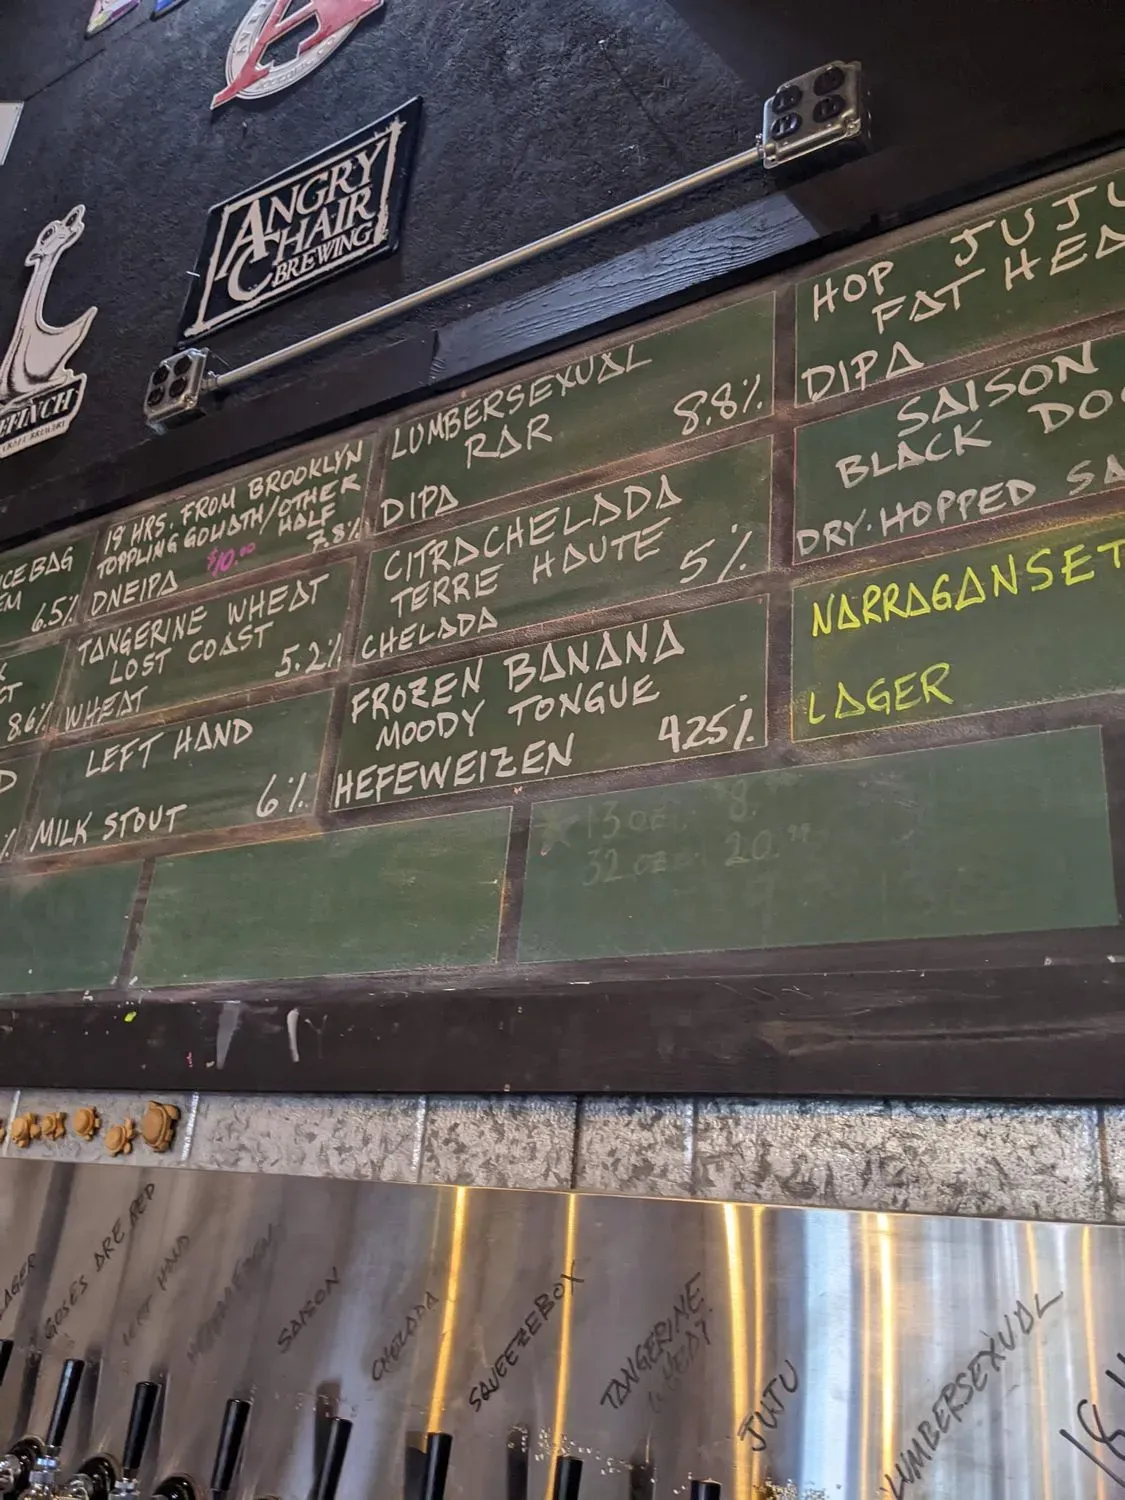 ANGRY
CHAIR
BREWING
19 HRS. FROM BROOKLYN
TOPPLING GOLIATH/OTHER
HALF
$10.00
7.8%
DNEIPA
LUMBERSEXUAL
RAR
8.8%
DIPA
HOP JUJU
FAT HEA
DIPA
ICEBAG
EM
6.5%
TANGERINE WHEAT
LOST COAST
5.2%
WHEAT
CITRACHELADA
TERRE HAUTE
5%
CHELADA
SAISON
BLACK DO
DRY-HOPPED SA
CT
8.6%
LEFT HAND
6%
MILK STOUT
FROZEN BANANA
MOODY TONGUE
425%
HEFEWEIZEN
NARRAGANSET
LAGER
D
%
13 oz. 8.
32 oz. 20.
LAGER
GOSES ARE RED
LEFT HAND
SAISON
CHELADA
SQUEEZEBOX
TANGERINE
WHEAT
JUJU
LUMBERSEXUAL